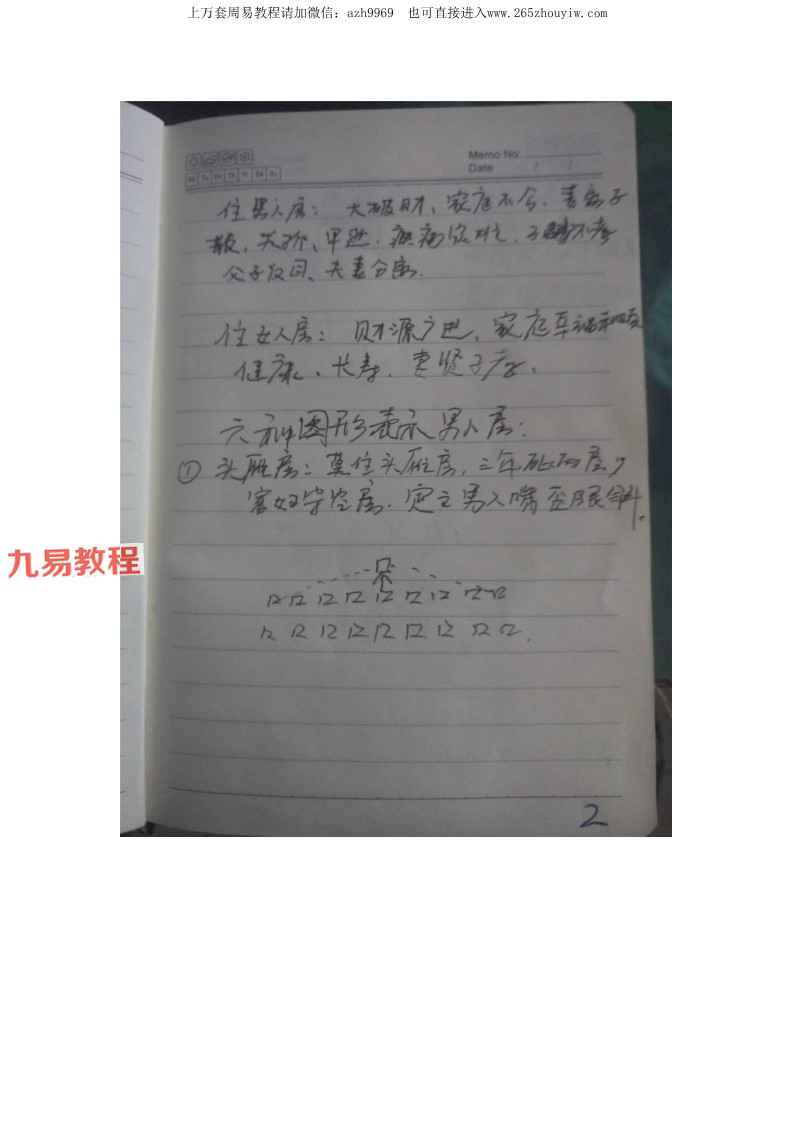 上万套周易教程请加微信：azh9969 也可直接进入www.265zhouyiw.com
Memo No.
Date / /
住男人房：大破财、家庭不合、妻离子
散、关孤、早逝、疾病缠、子不孝
父子反目、夫妻分离.
住女人房：财源广进、家庭幸福和
健康、长寿、妻贤子孝.
六神图形表示男人房：
① 头雁房：莫住头雁房，三年砍两房，
寡妇守空房. 定主男人嘴歪眼斜.
九易教程
2